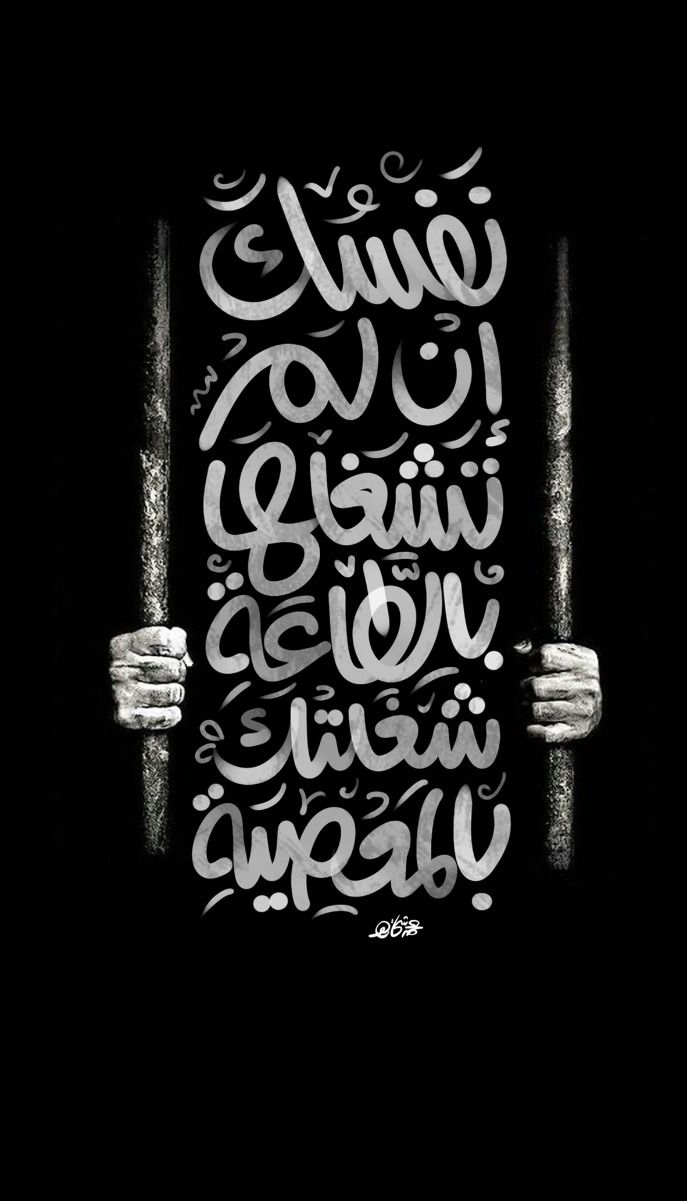 نَفْسُكَ
إن لم
تشغلها
بالطَّاعَة
شَغَلَتْكَ
بالمَعْصِيَةِ